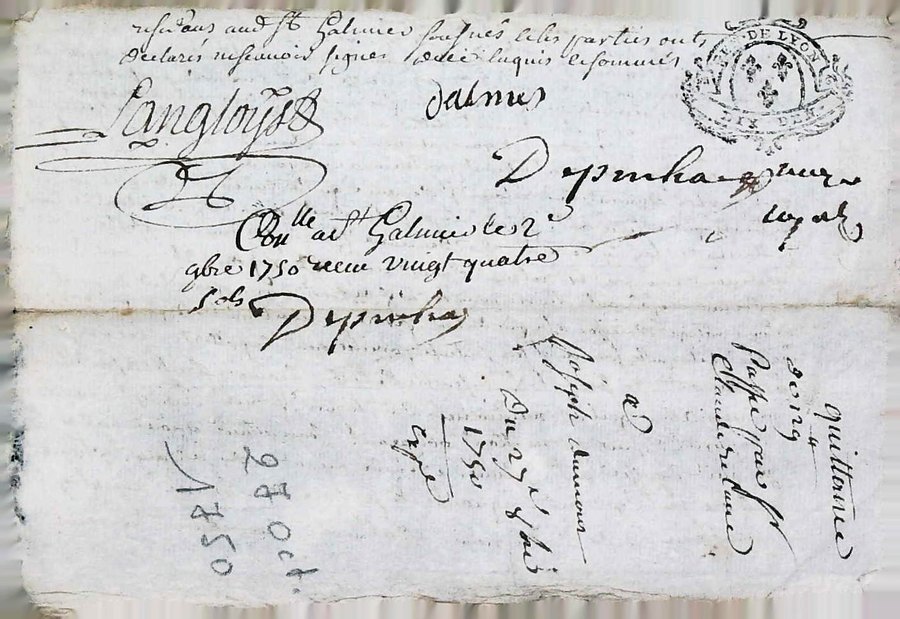 residans aud St Galmier soussignés les parties ont
declarés ne scavoir signer de ce enquis et sommés
GEN. DE LYON
DIX DEN
Langloys dalmes
Depinhac
Conlle a St Galmier le 2e
9bre 1750 receu vingt quatre
sols
Depinhac
quittance
passé par Sr
Claude
a
Joseph dumour
Du 27e 8bre
1750
Expé
28 oct.
1750